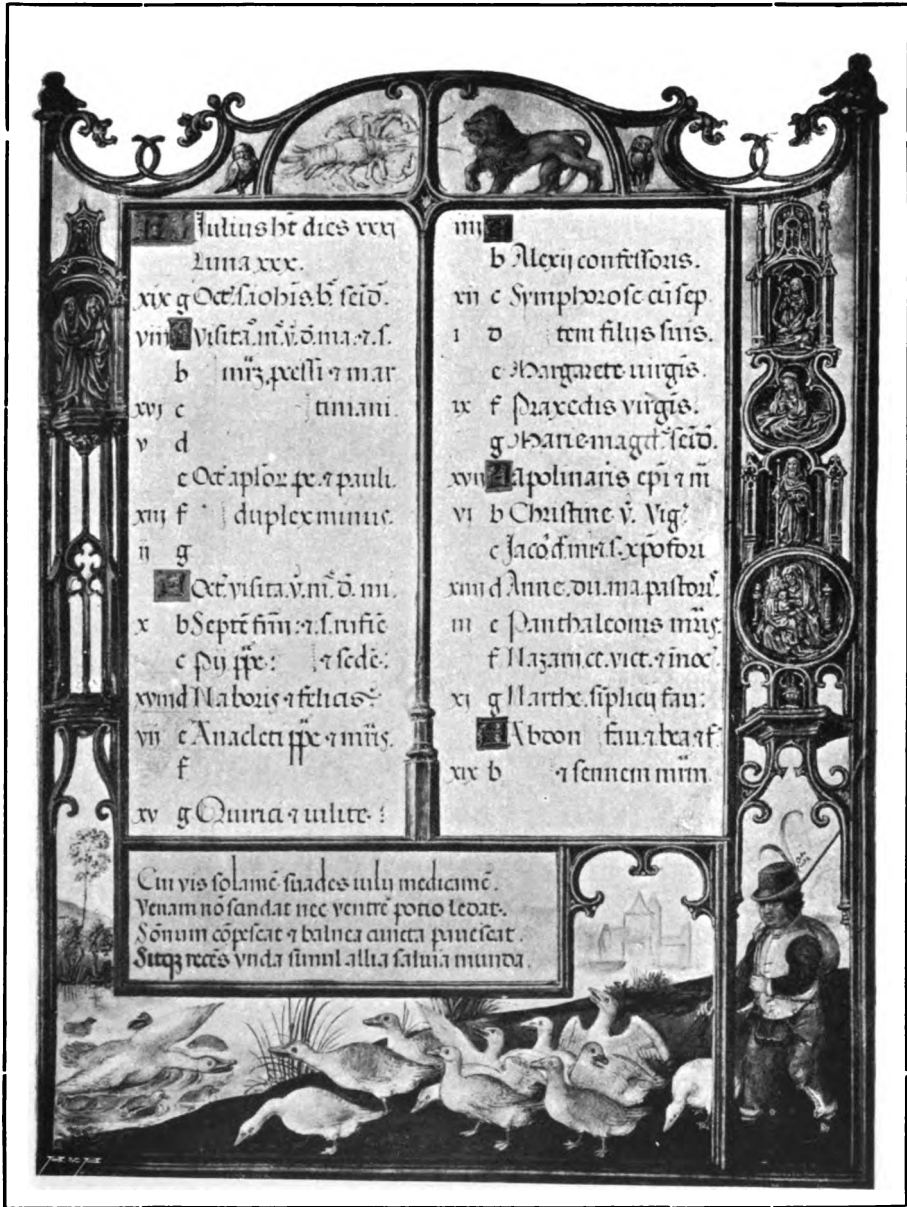 Julius ht dies xxxj
Luna xxx.
xix g Oct. s. iohis. b. seīd.
viii A Visita. m. v. d. ma. ⁊ s.
b mrz. pcessi ⁊ mar
xvj c timani.
v d
e Oct aplor. pe. ⁊ pauli.
xiij f duplex minus.
ij g
A Oct. visita. v. m. d. mi.
x b Septē frm: ⁊ s. rufīe
c Pij ppe: ⁊ sedē:
xviii d Naboris ⁊ felicis
vii e Anacleti ppe ⁊ mris.
f
xv g Quirici ⁊ iulite:
iiii A
b Alexij confessoris.
xii c Symphorose cū sep
i d tem filijs suis.
e Margarete uirgīs.
ix f Praxedis virgīs.
g Marie magd. seīd.
xvii A Apolinaris epī ⁊ m̄
vi b Christine v. Vig.
c Jaco. d. mi ⁊ s. xpofori
xiiii d Anne. du. ma. pastor.
iii e Panthaleonis mris.
f Nazarii. ct. vict. ⁊ inoc.
xj g Marthe. siplicij fau:
A Abdon fau. ⁊ bea ⁊ f.
xix b ⁊ sennem mm.
Cui vis solamē suades iulij medicamē.
Venam nō scindat nec ventrē potio ledat.
Sōnum cōpescat ⁊ balnea cuncta pauescat.
Sitqz recēs vnda simul allia saluia munda.